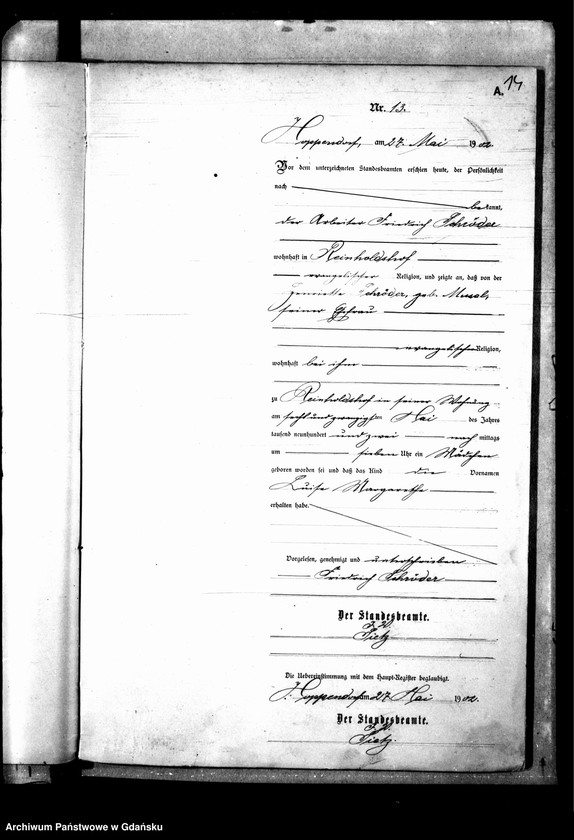 A. 14
Nr. 13.
Hoppendorf, am 27. Mai 1902.
Vor dem unterzeichneten Standesbeamten erschien heute, der Persönlichkeit
nach
bekannt,
der Arbeiter Friedrich Schröder
wohnhaft in Reinholdshof
evangelischer Religion, und zeigte an, daß von der
Henriette Schröder, geb.
seiner Ehefrau
evangelischer Religion,
wohnhaft bei ihm
zu Reinholdshof in seiner Wohnung
am sechsundzwanzigsten Mai des Jahres
tausend neunhundert und zwei nachmittags
um sieben Uhr ein Mädchen
geboren worden sei und daß das Kind die Vornamen
Luise Margarethe
erhalten habe.
Vorgelesen, genehmigt und unterschrieben
Friedrich Schröder
Der Standesbeamte.
Tietz
Die Uebereinstimmung mit dem Haupt-Register beglaubigt.
Hoppendorf am 27. Mai 1902.
Der Standesbeamte.
Tietz.
Archiwum Państwowe w Gdańsku